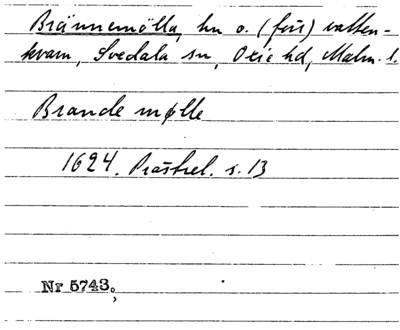 Brännemölla, hn o. (förr) vatten-
kvarn, Svedala sn, Oxie hd, Malm. l.
Brande mølle
1624. Prästrel. s. 13
Nr 5743.